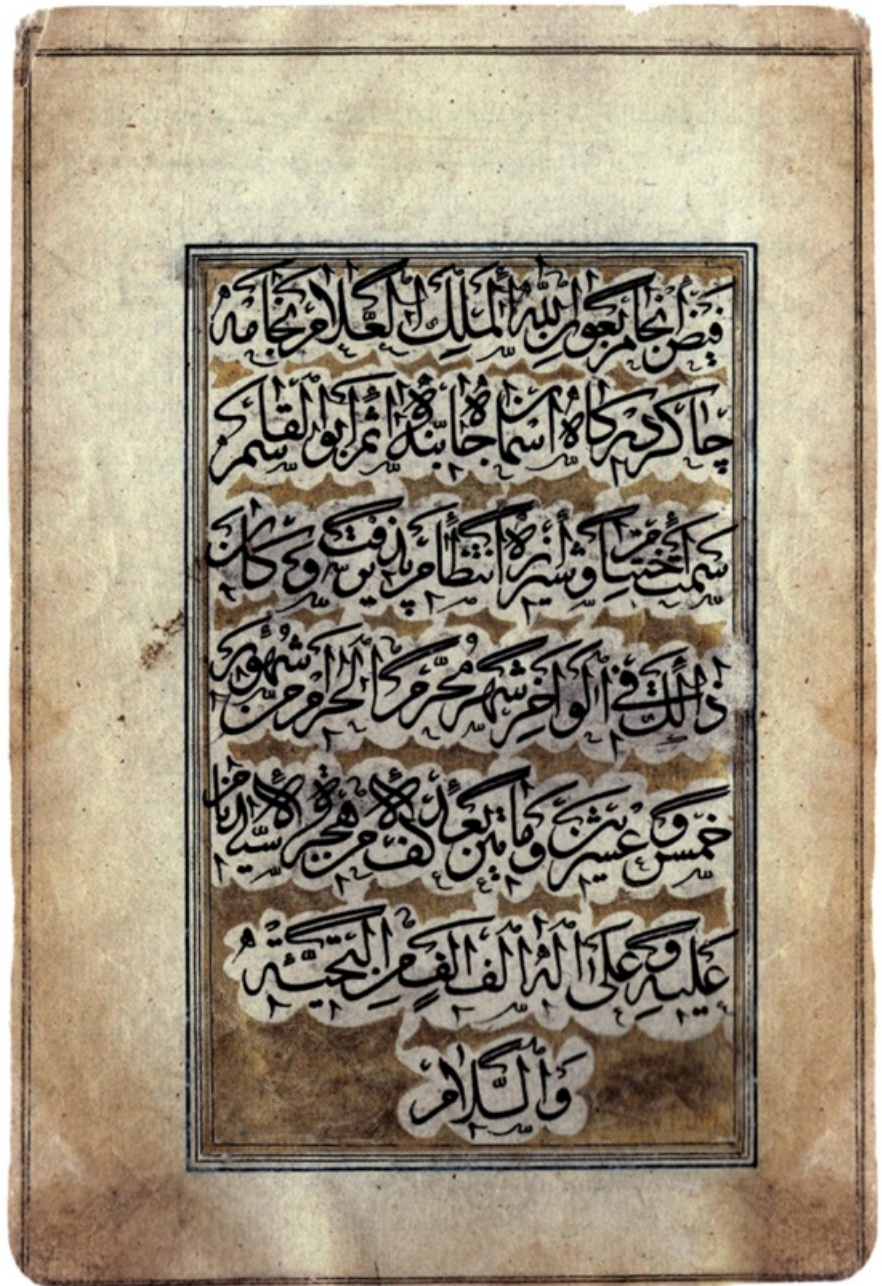 فیض انجام بعون الله الملک العلام بخامه
چاکر درکاه اسمان جابنده اثم ابوالقاسم
سمت اختتام وشیرازه انتظام پذیرفت وکان
ذالک فی الواخر شهر محرم الحرام من شهور
خمس و عشرین و ماتین بعد الالف من هجرة
علیه وعلی اله الف الف من التحیته
والسلام